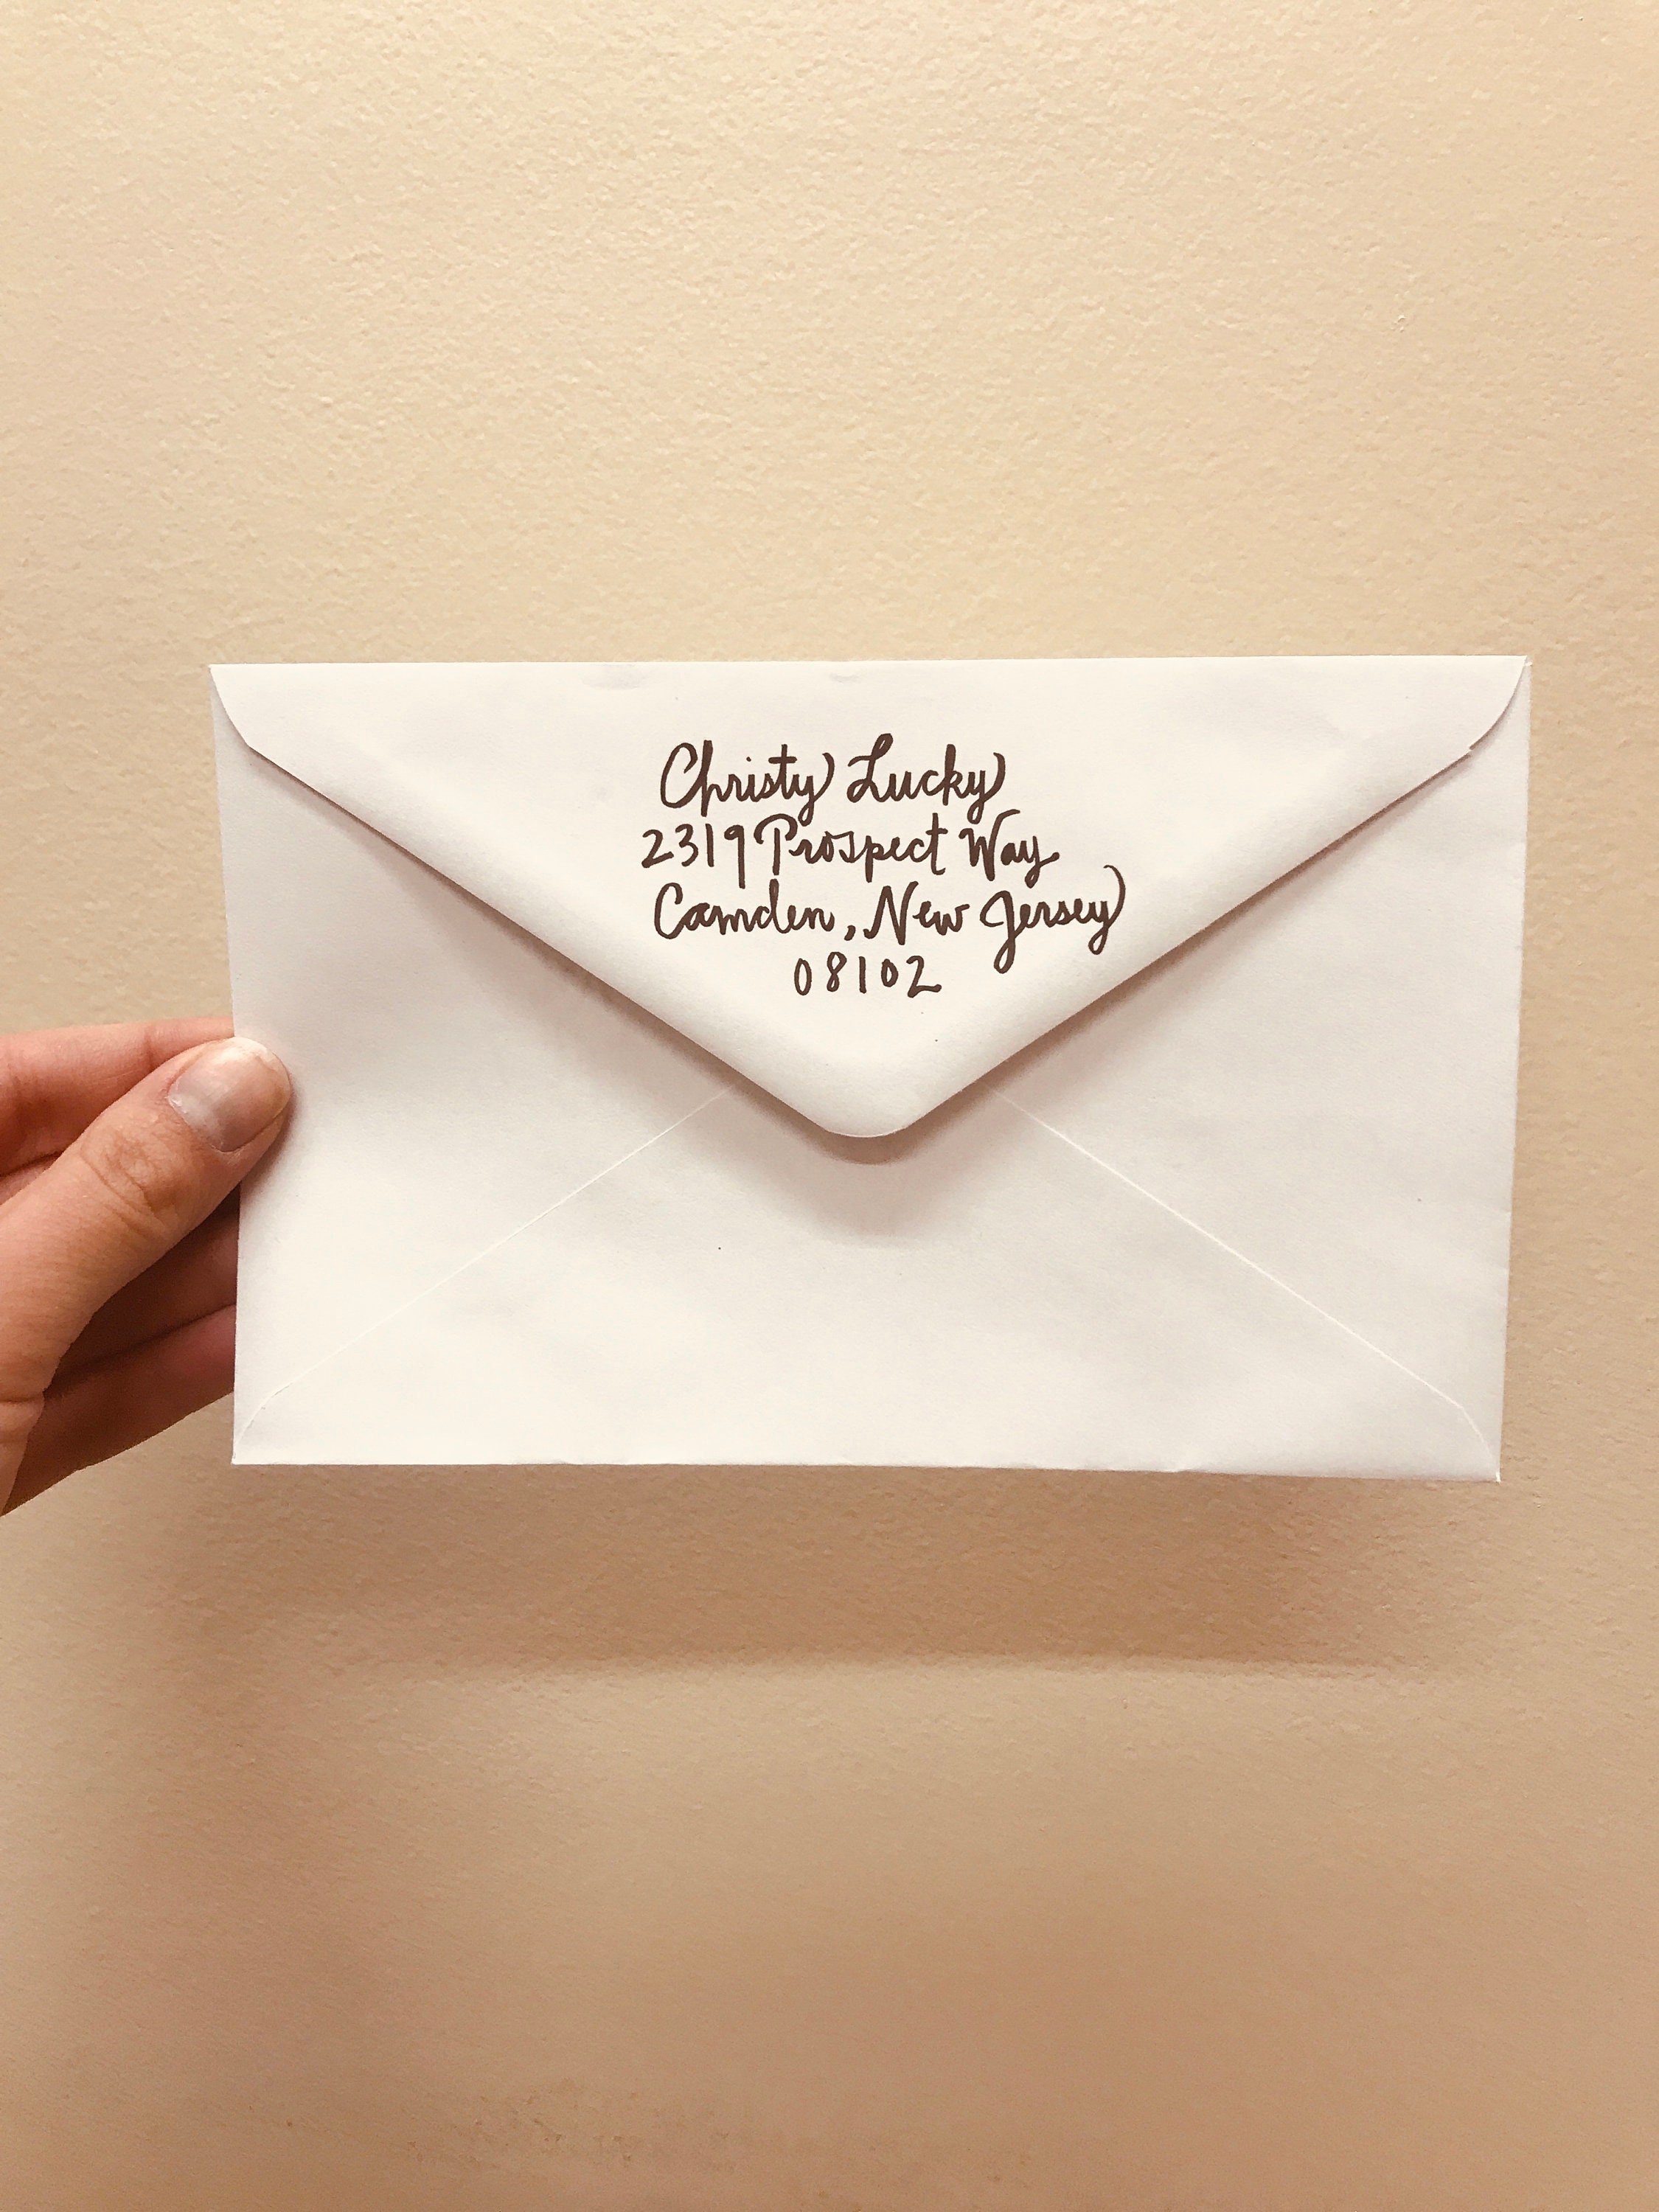 Christy Lucky
2319 Prospect Way
Camden, New Jersey
08102